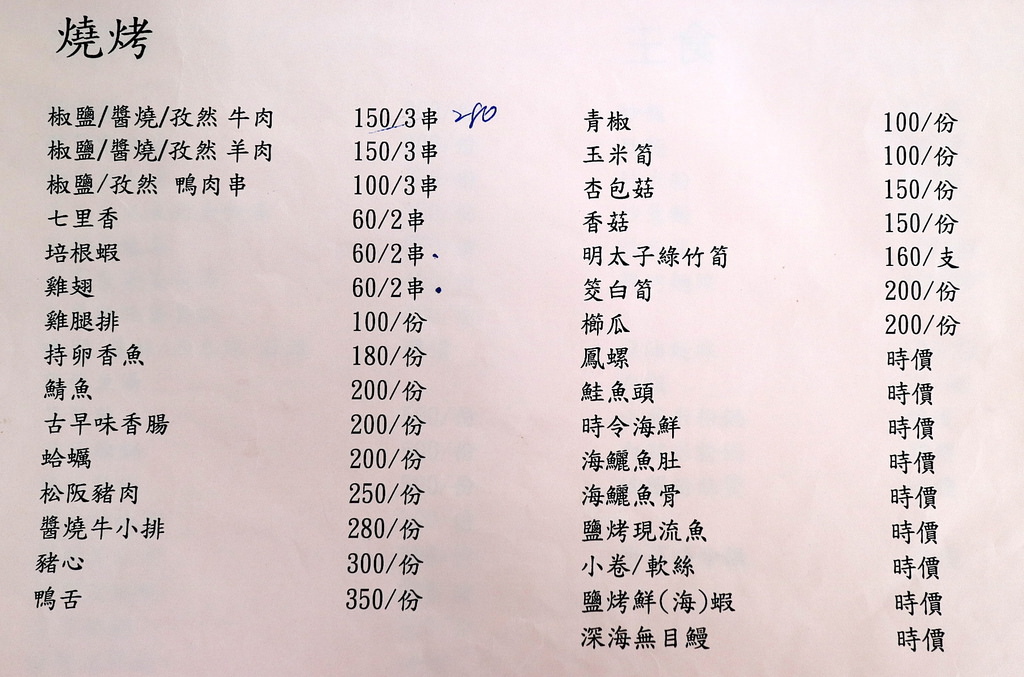 燒烤
椒鹽/醬燒/孜然 牛肉 150/3串 280
椒鹽/醬燒/孜然 羊肉 150/3串
椒鹽/孜然 鴨肉串 100/3串
七里香 60/2串
培根蝦 60/2串
雞翅 60/2串
雞腿排 100/份
持卵香魚 180/份
鯖魚 200/份
古早味香腸 200/份
蛤蠣 200/份
松阪豬肉 250/份
醬燒牛小排 280/份
豬心 300/份
鴨舌 350/份
青椒 100/份
玉米筍 100/份
杏包菇 150/份
香菇 150/份
明太子綠竹筍 160/支
筊白筍 200/份
櫛瓜 200/份
鳳螺 時價
鮭魚頭 時價
時令海鮮 時價
海鱺魚肚 時價
海鱺魚骨 時價
鹽烤現流魚 時價
小卷/軟絲 時價
鹽烤鮮(海)蝦 時價
深海無目鰻 時價